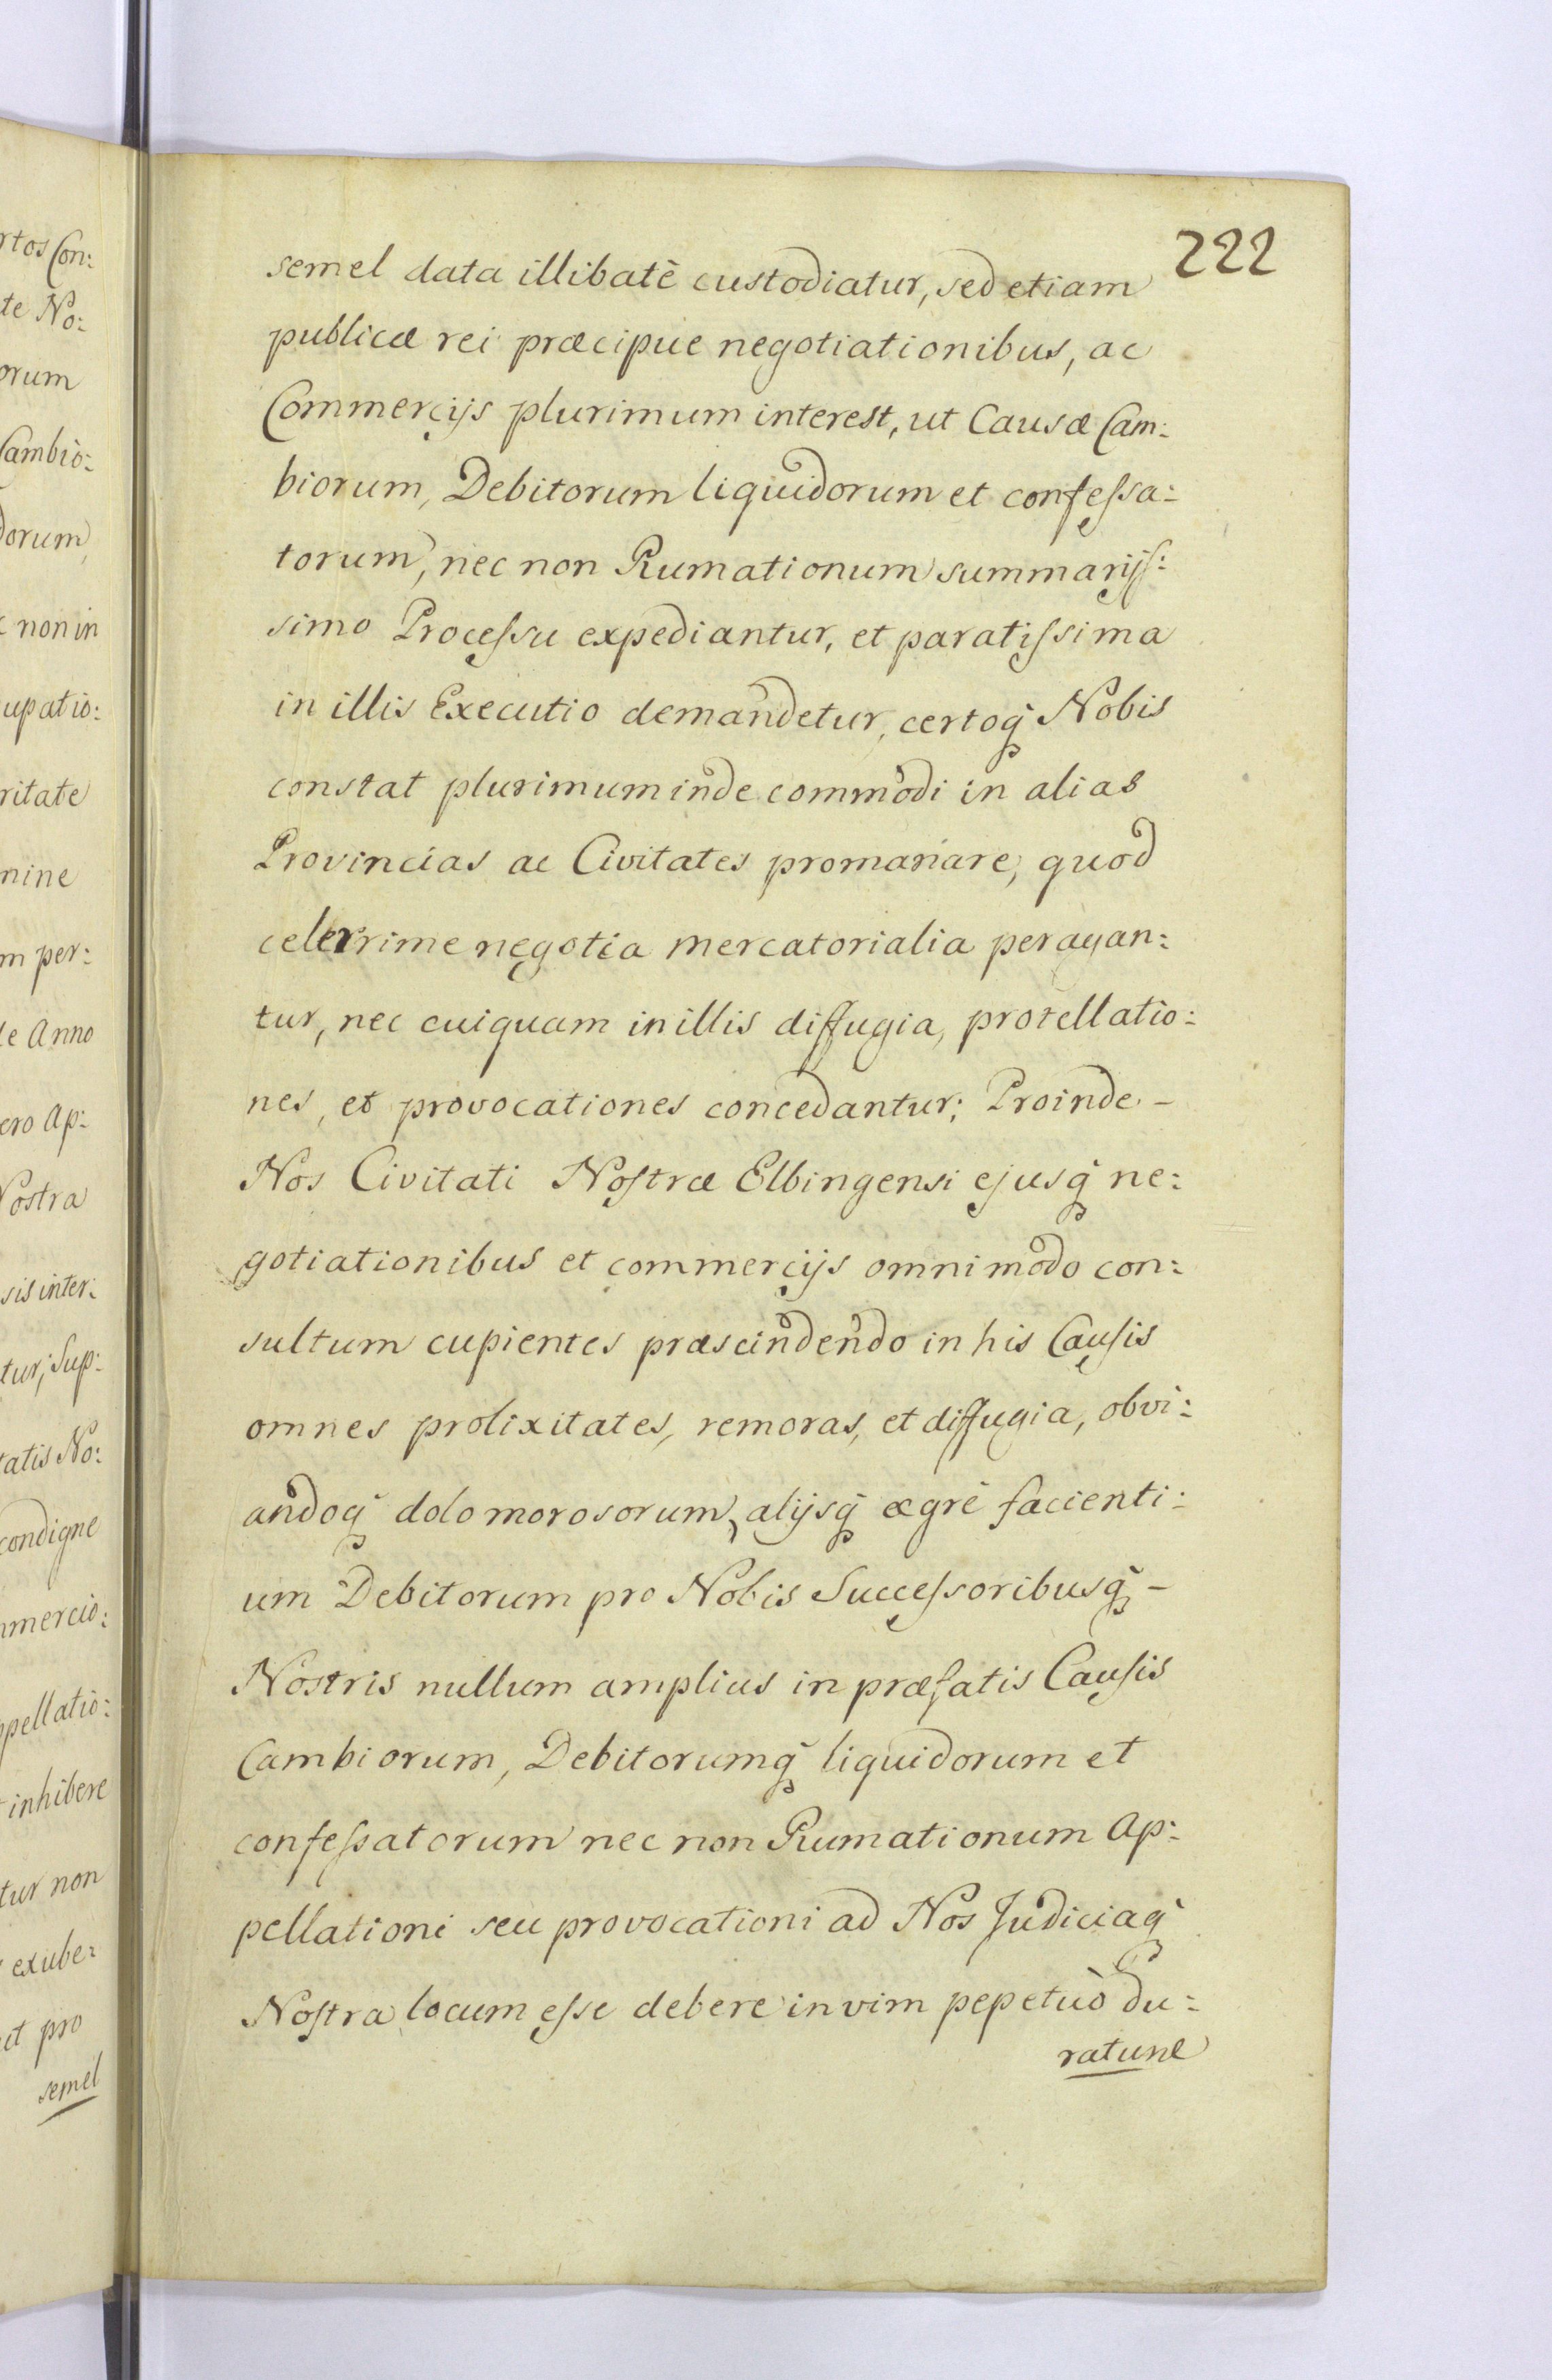 222
semel data illibatè custodiatur, sed etiam
publicæ rei præcipue negotiationibus, ac
Commercijs plurimum interest, ut Causæ Cam:
biorum, Debitorum liquidorum et confessa:
torum, nec non Rumationum summarijs:
simo Processu expediantur, et paratissima
in illis Executio demandetur, certoq̃ Nobis
constat plurimum inde commodi in alias
Provincias ac Civitates promanare, quod
celerrime negotia mercatorialia peragan:
tur, nec cuiquam in illis diffugia, protellatio:
nes, et provocationes concedantur; Proinde -
Nos Civitati Nostræ Elbingensi ejusq̃ ne:
gotiationibus et commercijs omnimodo con:
sultum cupientes præscindendo in his Causis
omnes prolixitates, remoras, et diffugia, obvi:
andoq̃ dolo morosorum, alijsq̃ ægrè facienti:
um Debitorum pro Nobis Successoribusq̃ -
Nostris nullum amplius in præfatis Causis
Cambiorum, Debitorumq̃ liquidorum et
confessatorum nec non Rumationum Ap:
pellationi seu provocationi ad Nos Judiciaq̃
Nostra locum esse debere in vim pepetuò du:
ratune
rtos Con:
te No:
orum
Cambio:
dorum,
c non in
upatio:
ritate
mine
m per:
de Anno
ero Ap:
Nostra
sis inter:
tur; Sup:
tatis No:
condigne
mmercio:
ppellatio:
inhibere
tur non
exube:
et pro
semel